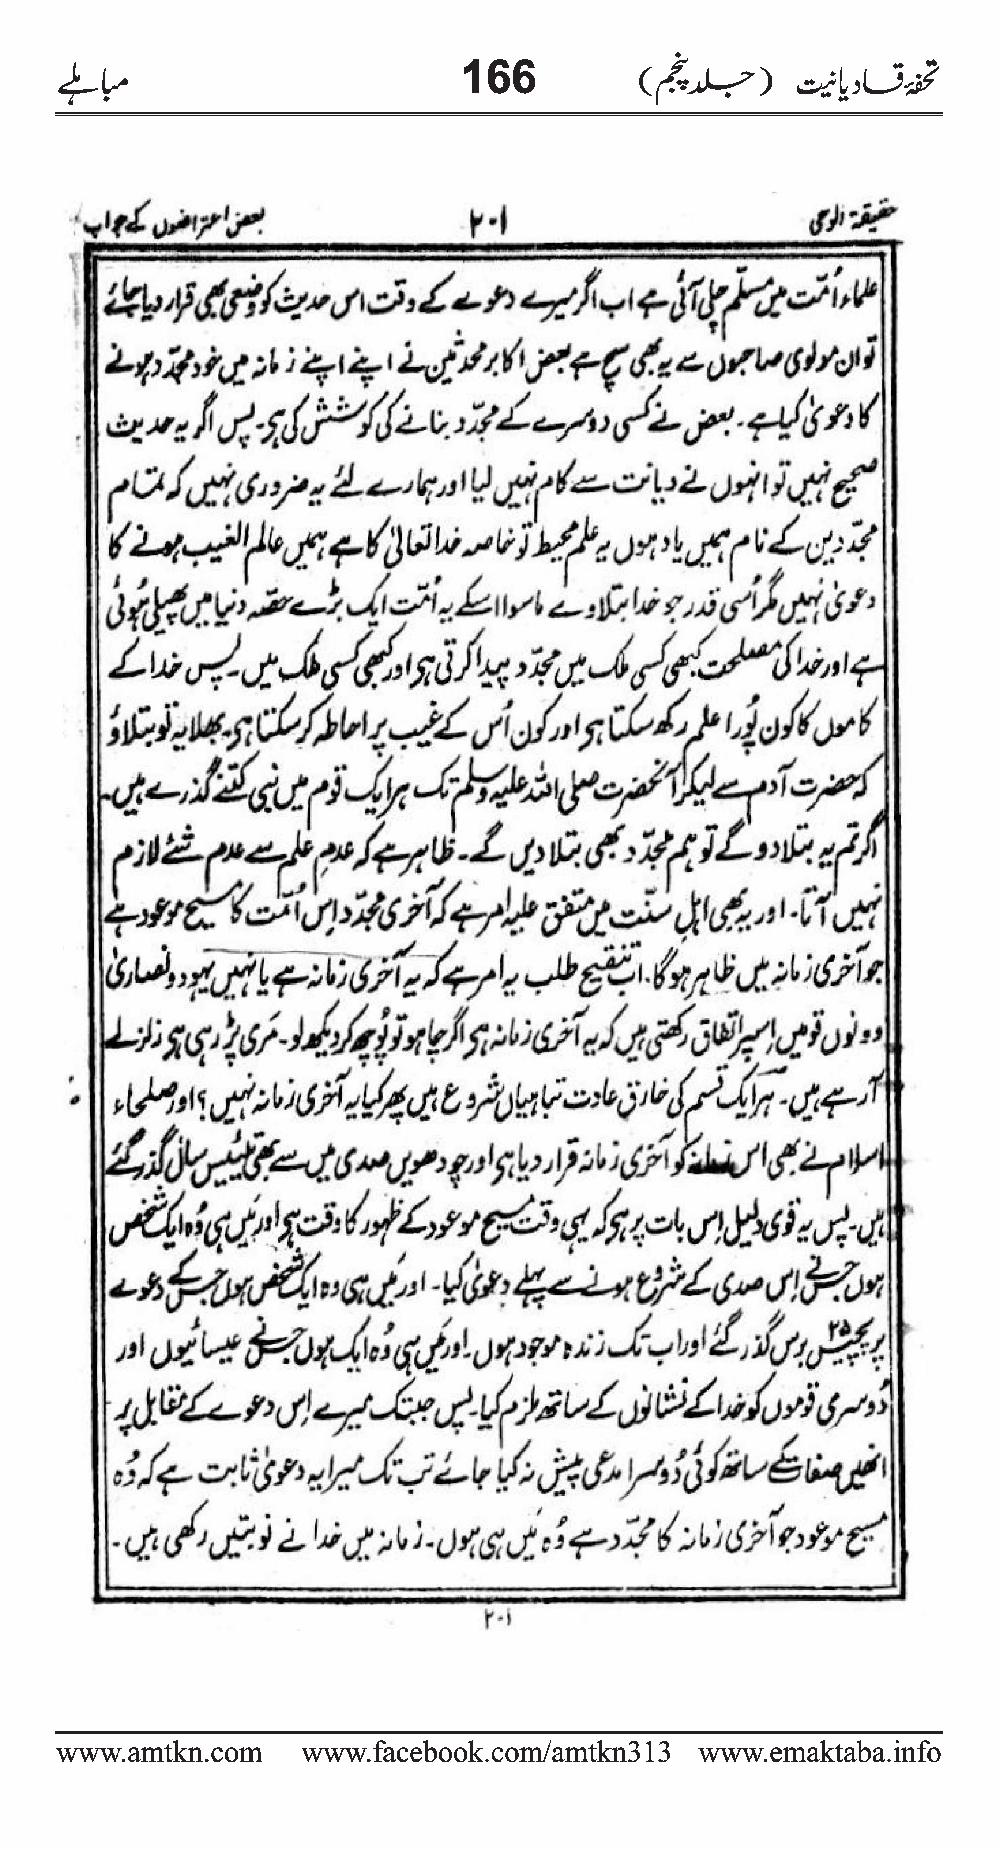 تحفۂ قادیانیت (جلد پنجم) 166 مباہلے
حقیقۃ الوحی ۲۰۱ بعض اعتراضوں کے جواب
علماء اُمّت میں مسلّم چلی آئی ہے اب اگر میرے دعوے کے وقت اس حدیث کو وضعی بھی قرار دیا جائے
تو ان مولوی صاحبوں سے یہ بھی سچ ہے بعض اکابر محدثین نے اپنے اپنے زمانہ میں خود مجدّد ہونے
کا دعویٰ کیا ہے۔ بعض نے کسی دوسرے کے مجدّد بنانے کی کوشش کی ہی۔ پس اگر یہ حدیث
صحیح نہیں تو انہوں نے دیانت سے کام نہیں لیا اور ہمارے لئے یہ ضروری نہیں کہ تمام
مجدّدین کے نام ہمیں یاد ہوں یہ علم محیط تو خاصہ خدا تعالیٰ کا ہے ہمیں عالم الغیب ہونے کا
دعویٰ نہیں مگر اُسی قدر جو خدا بتلاوے ماسوا اسکے یہ اُمّت ایک بڑے حصّہ دنیا میں پھیلی ہُوئی
ہے اور خدا کی مصلحت کبھی کسی ملک میں مجدّد پیدا کرتی ہی اور کبھی کسی ملک میں۔ پس خدا کے
کاموں کا کون پُورا علم رکھ سکتا ہی اور کون اُس کے غیب پر احاطہ کر سکتا ہی۔ بھلا یہ تو بتلاؤ
کہ حضرت آدم سے لیکر آنحضرت صلی اللہ علیہ وسلم تک ہر ایک قوم میں نبی کتنے گذرے ہیں۔
اگر تم یہ بتلا دو گے تو ہم مجدّد بھی بتلا دیں گے۔ ظاہر ہے کہ عدمِ علم سے عدم شئے لازم
نہیں آتا۔ اور یہ بھی اہلِ سنّت میں متفق علیہ امر ہے کہ آخری مجدّد اِس اُمّت کا مسیح موعود ہے
جو آخری زمانہ میں ظاہر ہوگا۔ اب تنقیح طلب یہ امر ہے کہ یہ آخری زمانہ ہے یا نہیں یہود و نصاریٰ
دونوں قومیں اِسپر اتفاق رکھتی ہیں کہ یہ آخری زمانہ ہی اگر چاہو تو پُوچھ کر دیکھ لو۔ مَری پڑ رہی ہی زلزلے
آرہے ہیں۔ ہر ایک قسم کی خارق عادت تباہیاں شروع ہیں پھر کیا یہ آخری زمانہ نہیں؟ اور صلحاء
اسلام نے بھی اس زمانہ کو آخری زمانہ قرار دیا ہی اور چودھویں صدی میں سے بھی تئیس سال گذر گئے
ہیں۔ پس یہ قوی دلیل اِس بات پر ہی کہ یہی وقت مسیح موعود کے ظہور کا وقت ہی اور مَیں ہی وُہ ایک شخص
ہوں جس نے اِس صدی کے شروع ہونے سے پہلے دعویٰ کیا۔ اور مَیں ہی وہ ایک شخص ہوں جس کے دعوے
پر پچیس ۲۵ برس گذر گئے اور اب تک زندہ موجود ہوں۔ اور مَیں ہی وُہ ایک ہوں جس نے عیسائیوں اور
دُوسری قوموں کو خدا کے نشانوں کے ساتھ ملزم کیا۔ پس جبتک میرے اِس دعوے کے مقابل پر
انھیں صفات کے ساتھ کوئی دُوسرا مدعی پیش نہ کیا جائے تب تک میرا یہ دعویٰ ثابت ہے کہ وُہ
مسیح موعود جو آخری زمانہ کا مجدّد ہے وُہ مَیں ہی ہوں۔ زمانہ میں خدا نے نوبتیں رکھی ہیں۔
۲۰۱
www.amtkn.com www.facebook.com/amtkn313 www.emaktaba.info